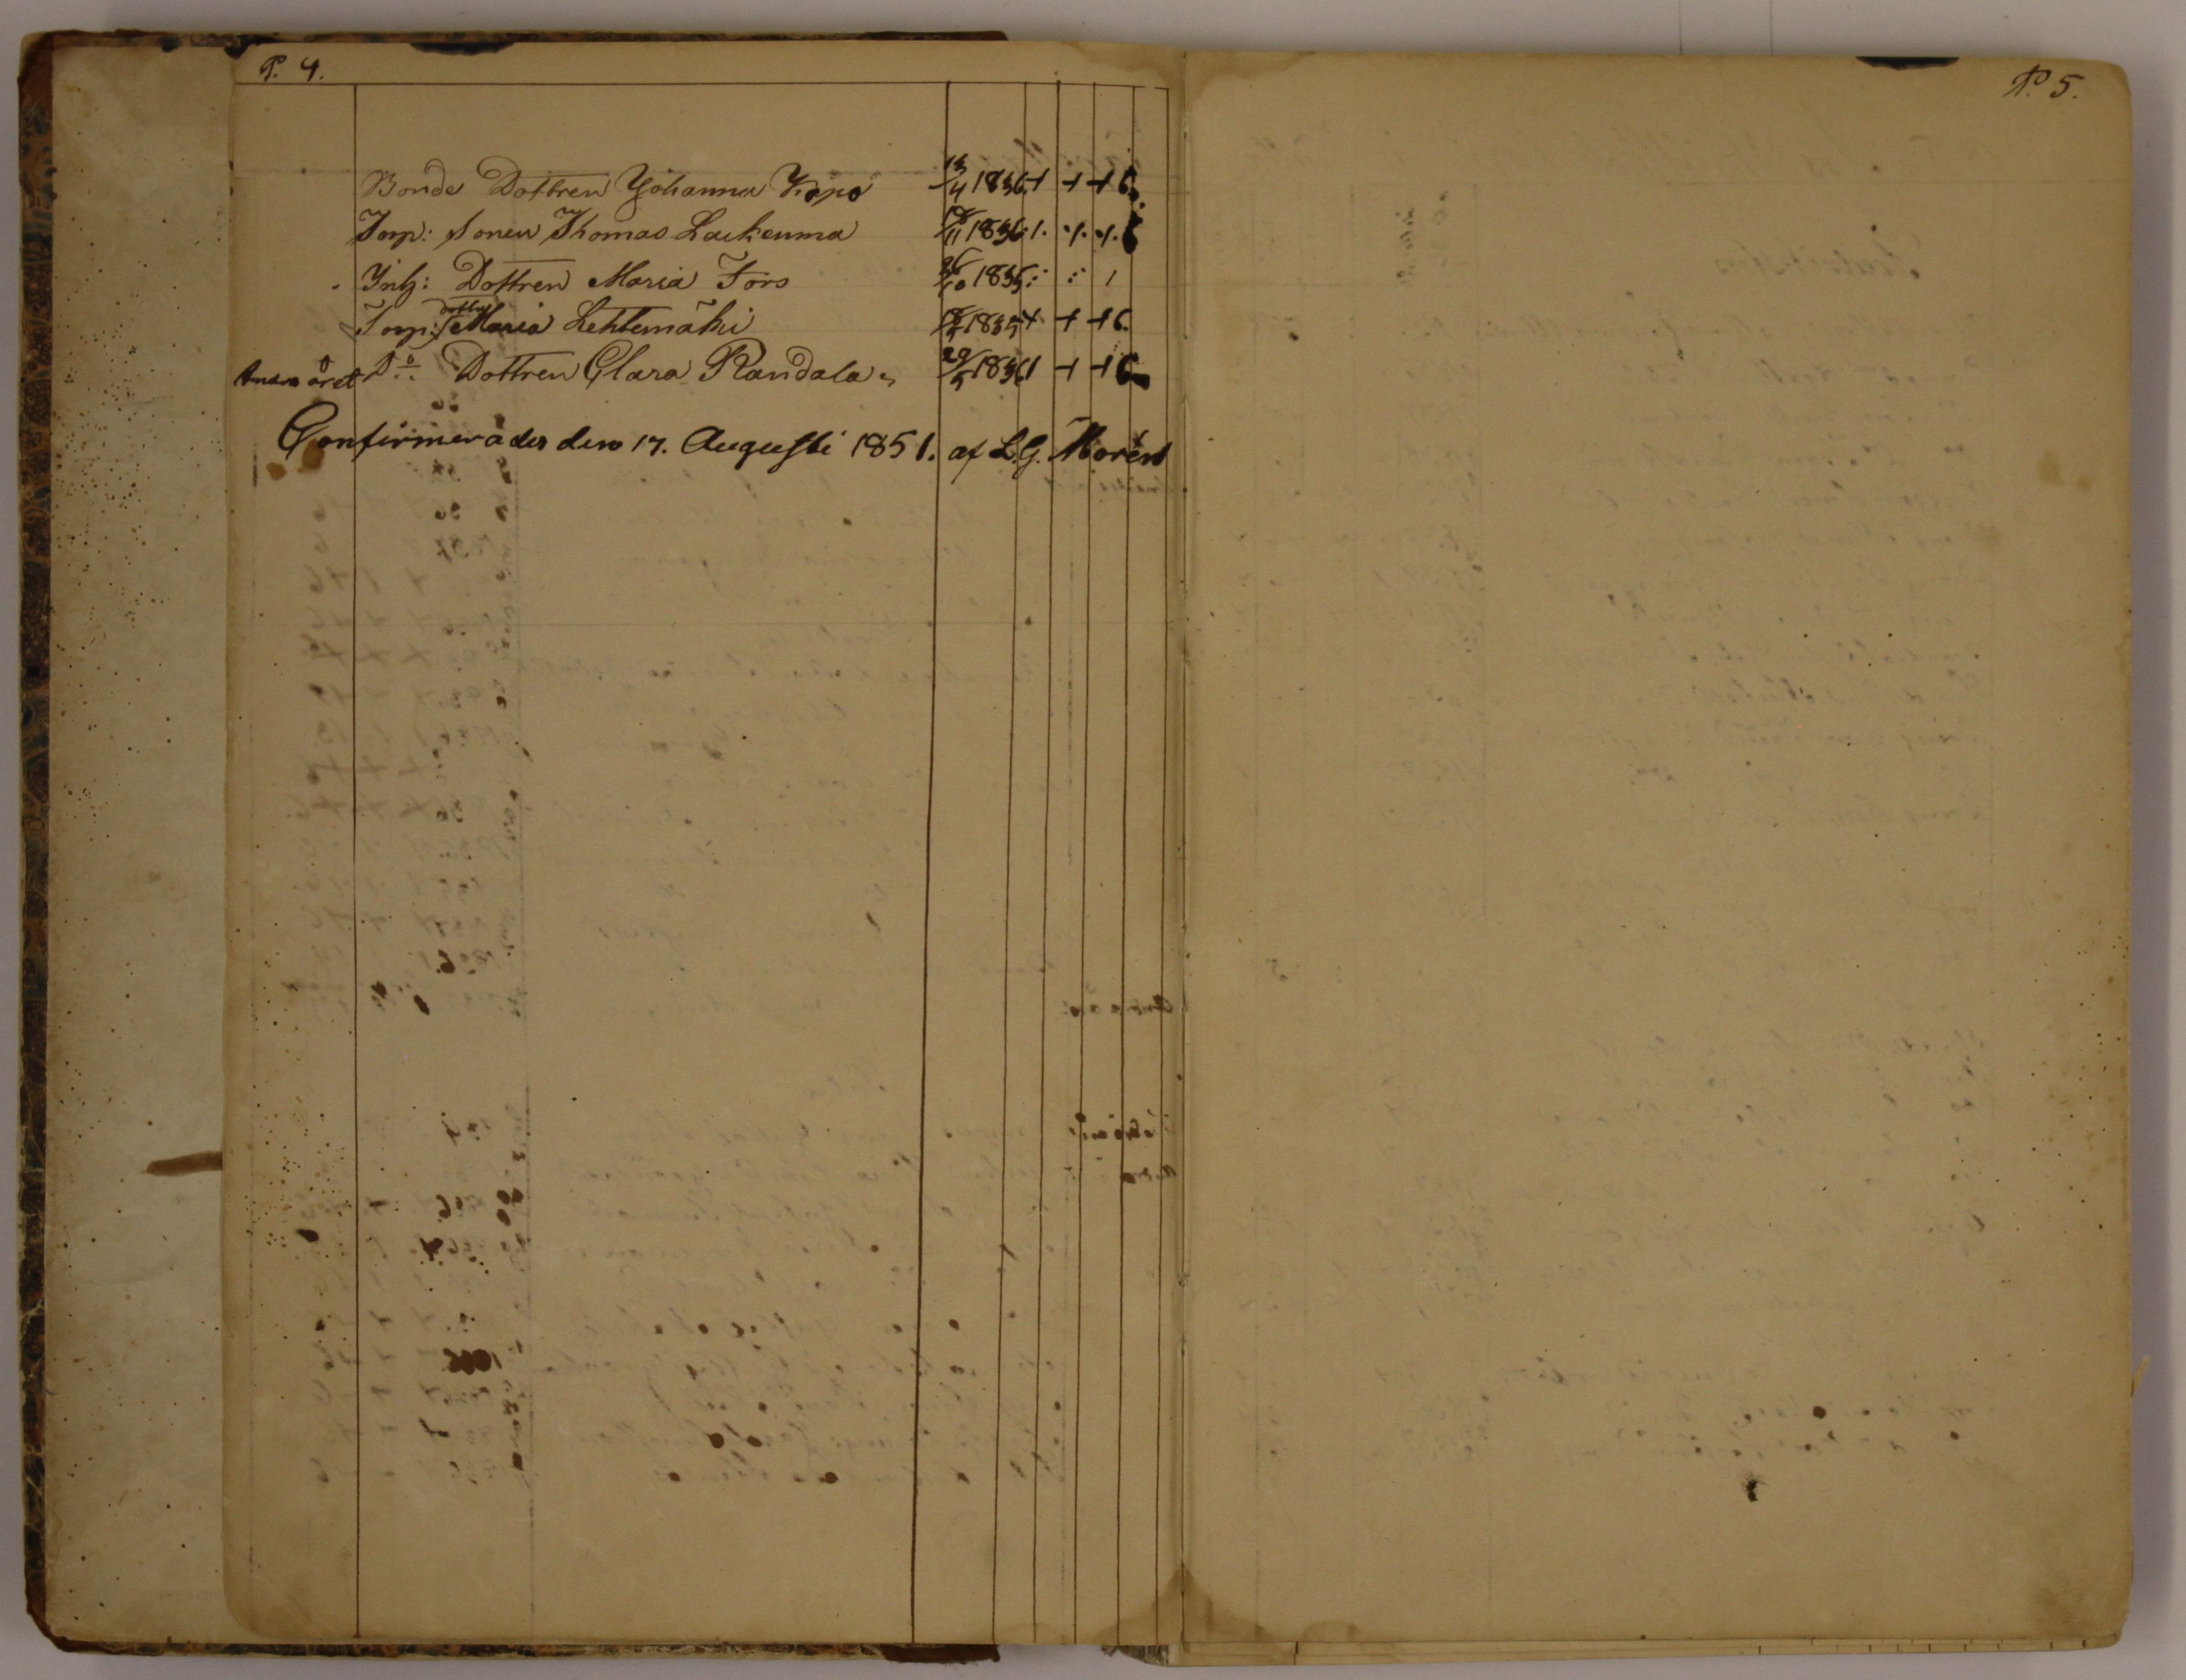 P. 4.
Bonde Dottren Johanna Kapo 13/4 1836 + + + 6.
Torp: Sonen Thomas Lackenma 18/11 1836
Inh: Dottren Maria Fors 26/10 1835
Torp: Dottren Maria Lehtemäki 18/5 1835 + + + 6.
Andra året Do Dottren Clara Randala 29/5 1836 1 + + 6
Confirmerades den 17. Augusti 1851. af L.G. Morén
P. 5.